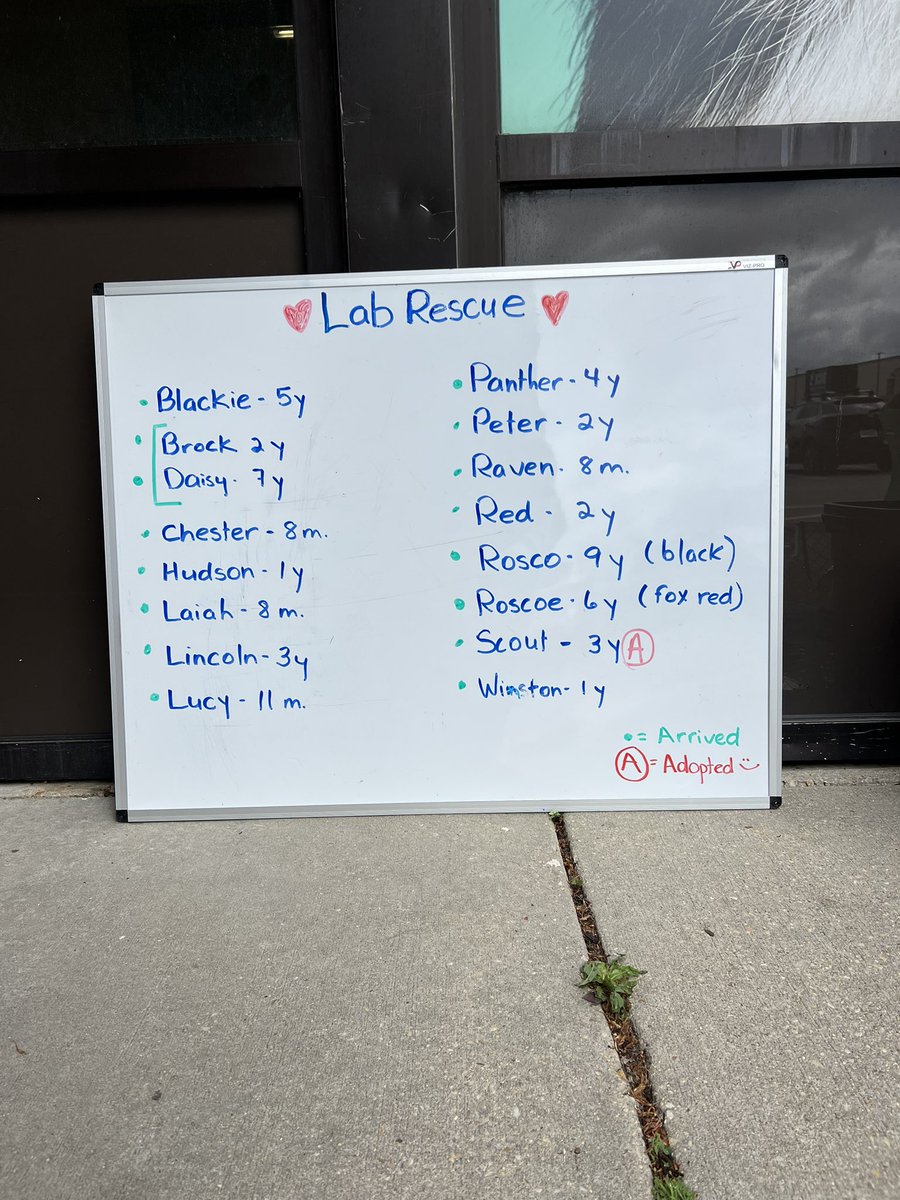 VIZ-PRO
Lab Rescue
• Blackie - 5y
• Brock 2y
• Daisy - 7y
• Chester - 8m.
• Hudson - 1y
• Laiah - 8m.
• Lincoln - 3y
• Lucy - 11m.
• Panther - 4y
• Peter - 2y
• Raven - 8m.
• Red - 2y
• Rosco - 9y (black)
• Roscoe - 6y (fox red)
• Scout - 3y A
• Winston - 1y
• = Arrived
A = Adopted